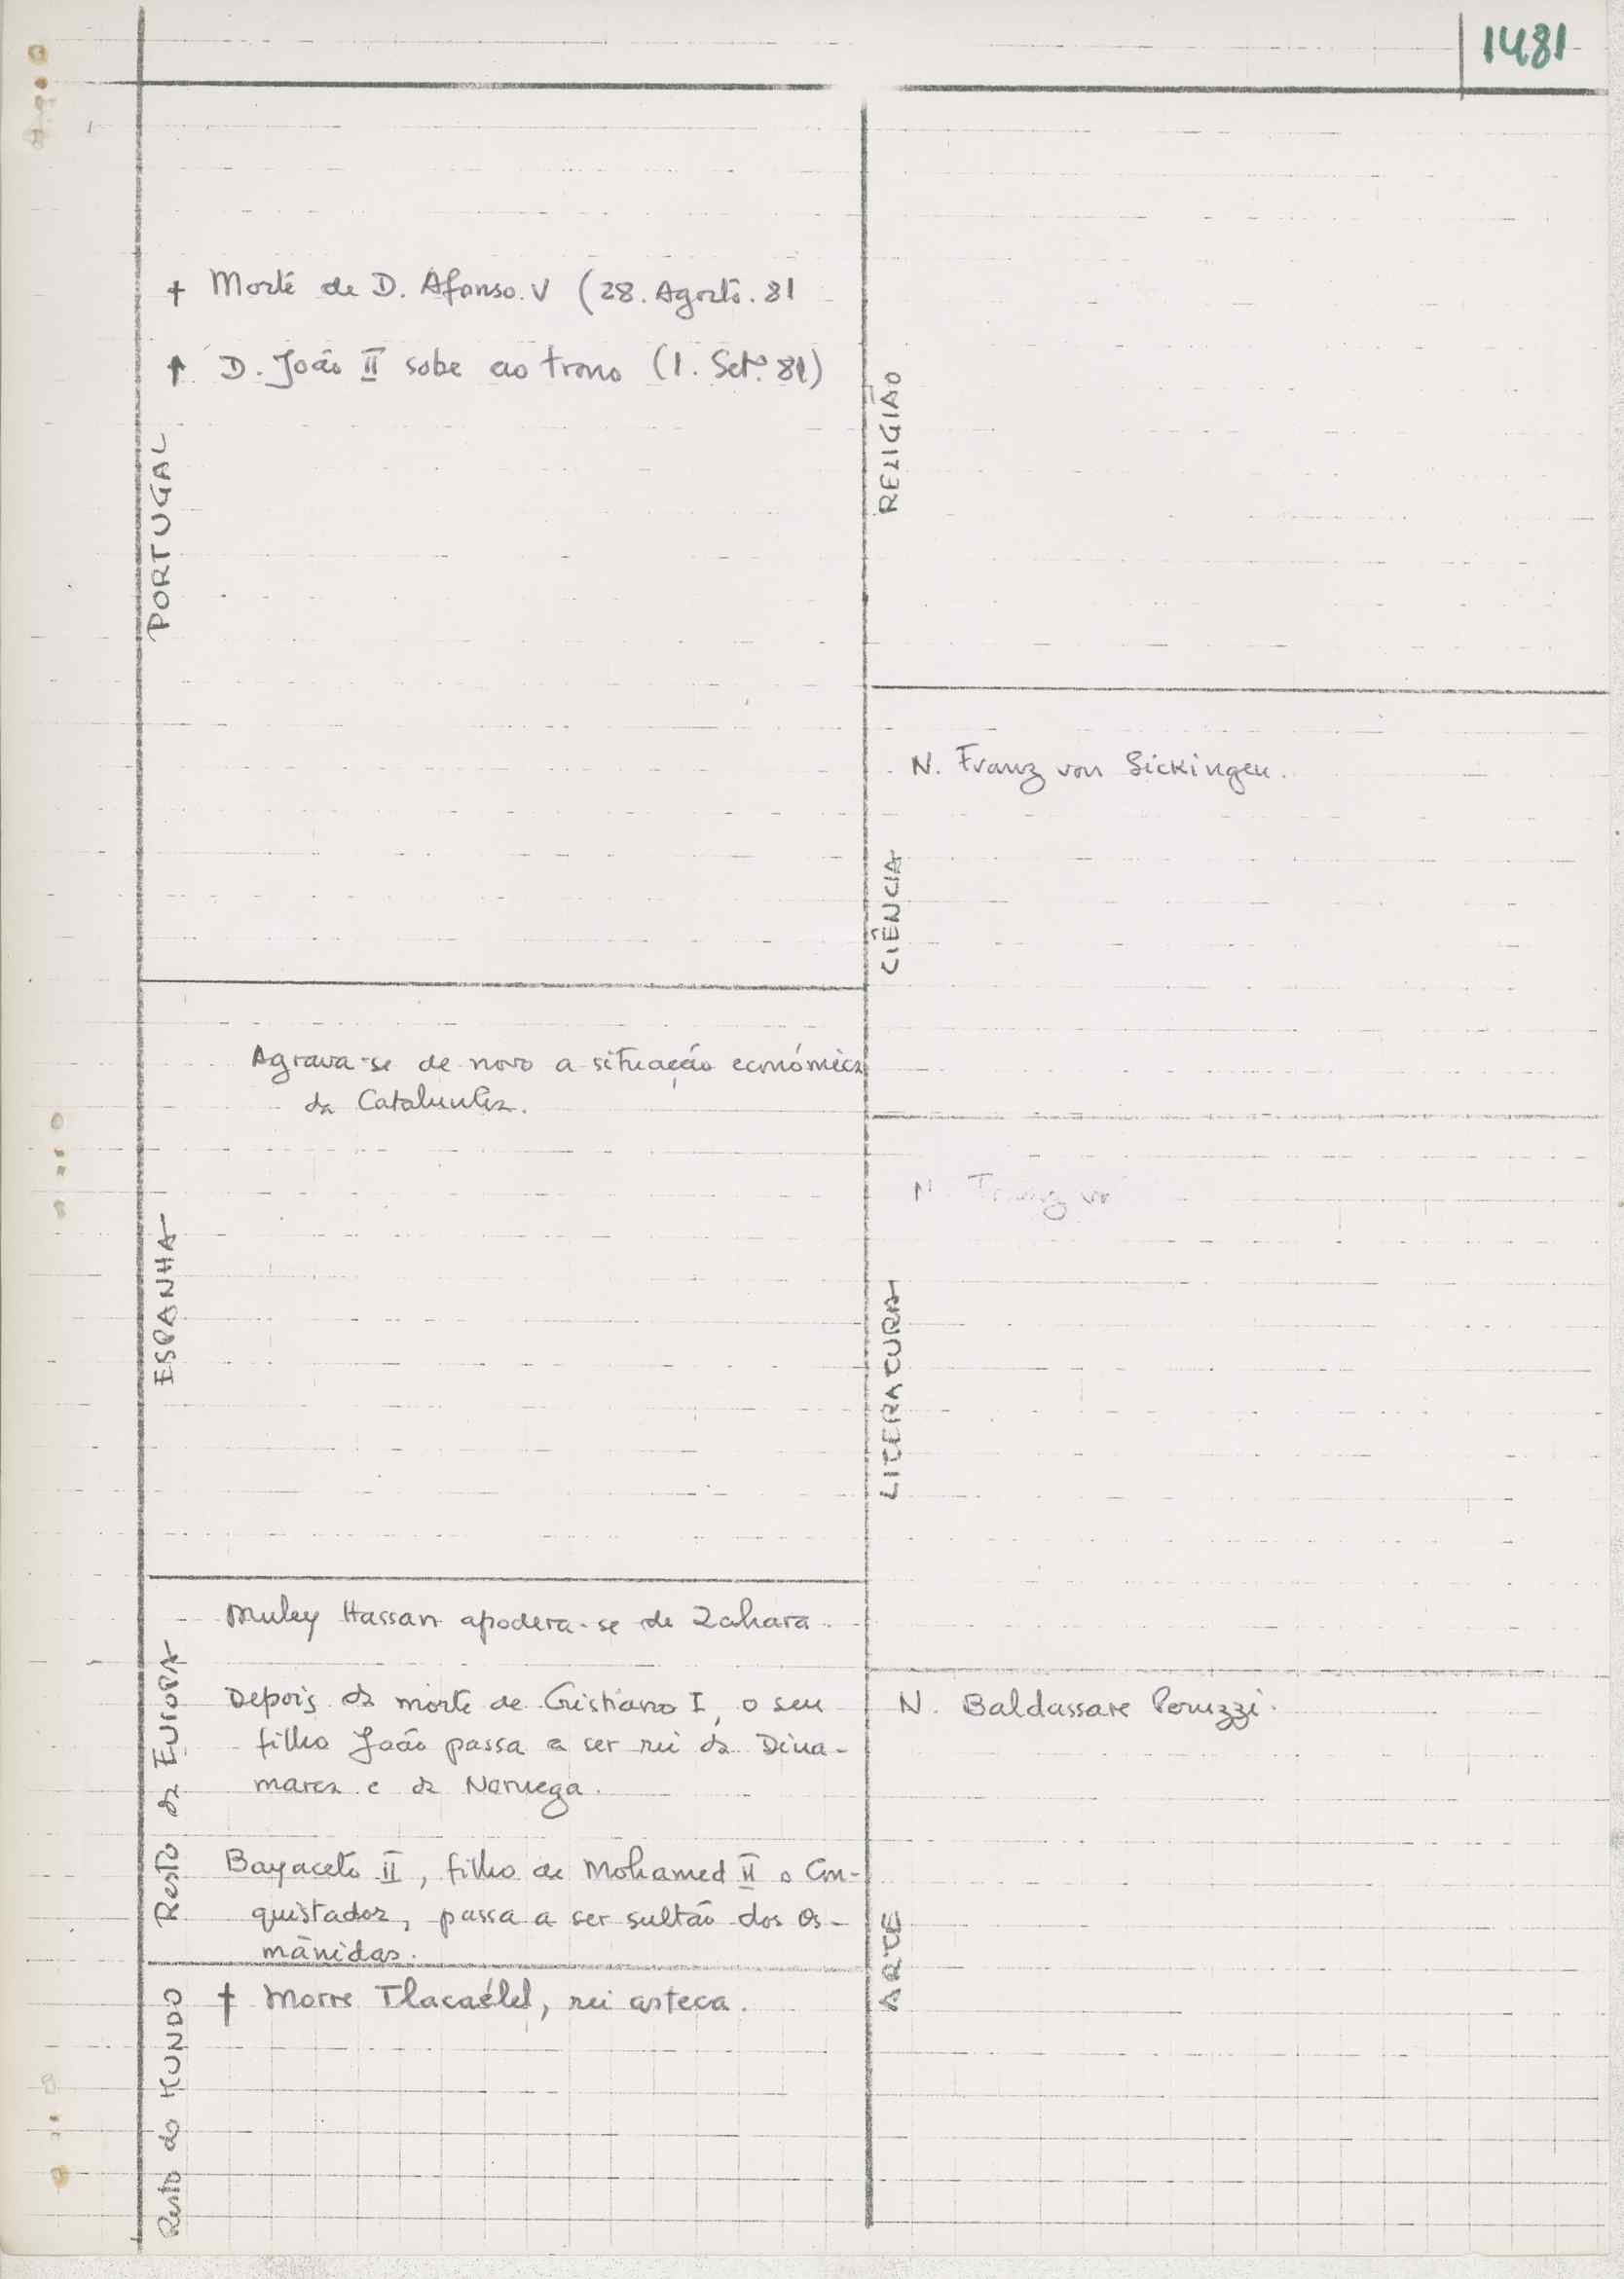 1481
PORTUGAL
† Morte de D. Afonso. V (28. Agosto. 81
↑ D. João II sobe ao trono (1. Setº. 81)
ESPANHA
Agrava-se de novo a situação económica
da Catalunha.
Resto da EUROPA
Muley Hassan apodera-se de Zahara.
Depois da morte de Cristiano I, o seu
filho João passa a ser rei da Dina-
marca e da Noruega.
Bayaceto II, filho de Mohamed II o Con-
quistador, passa a ser sultão dos Os-
mânidas.
Resto do MUNDO
† Morre Tlacaélel, rei asteca.
RELIGIÃO
CIÊNCIA
N. Franz von Sickingen.
LITERATURA
N. Franz vo
ARTE
N. Baldassare Peruzzi.